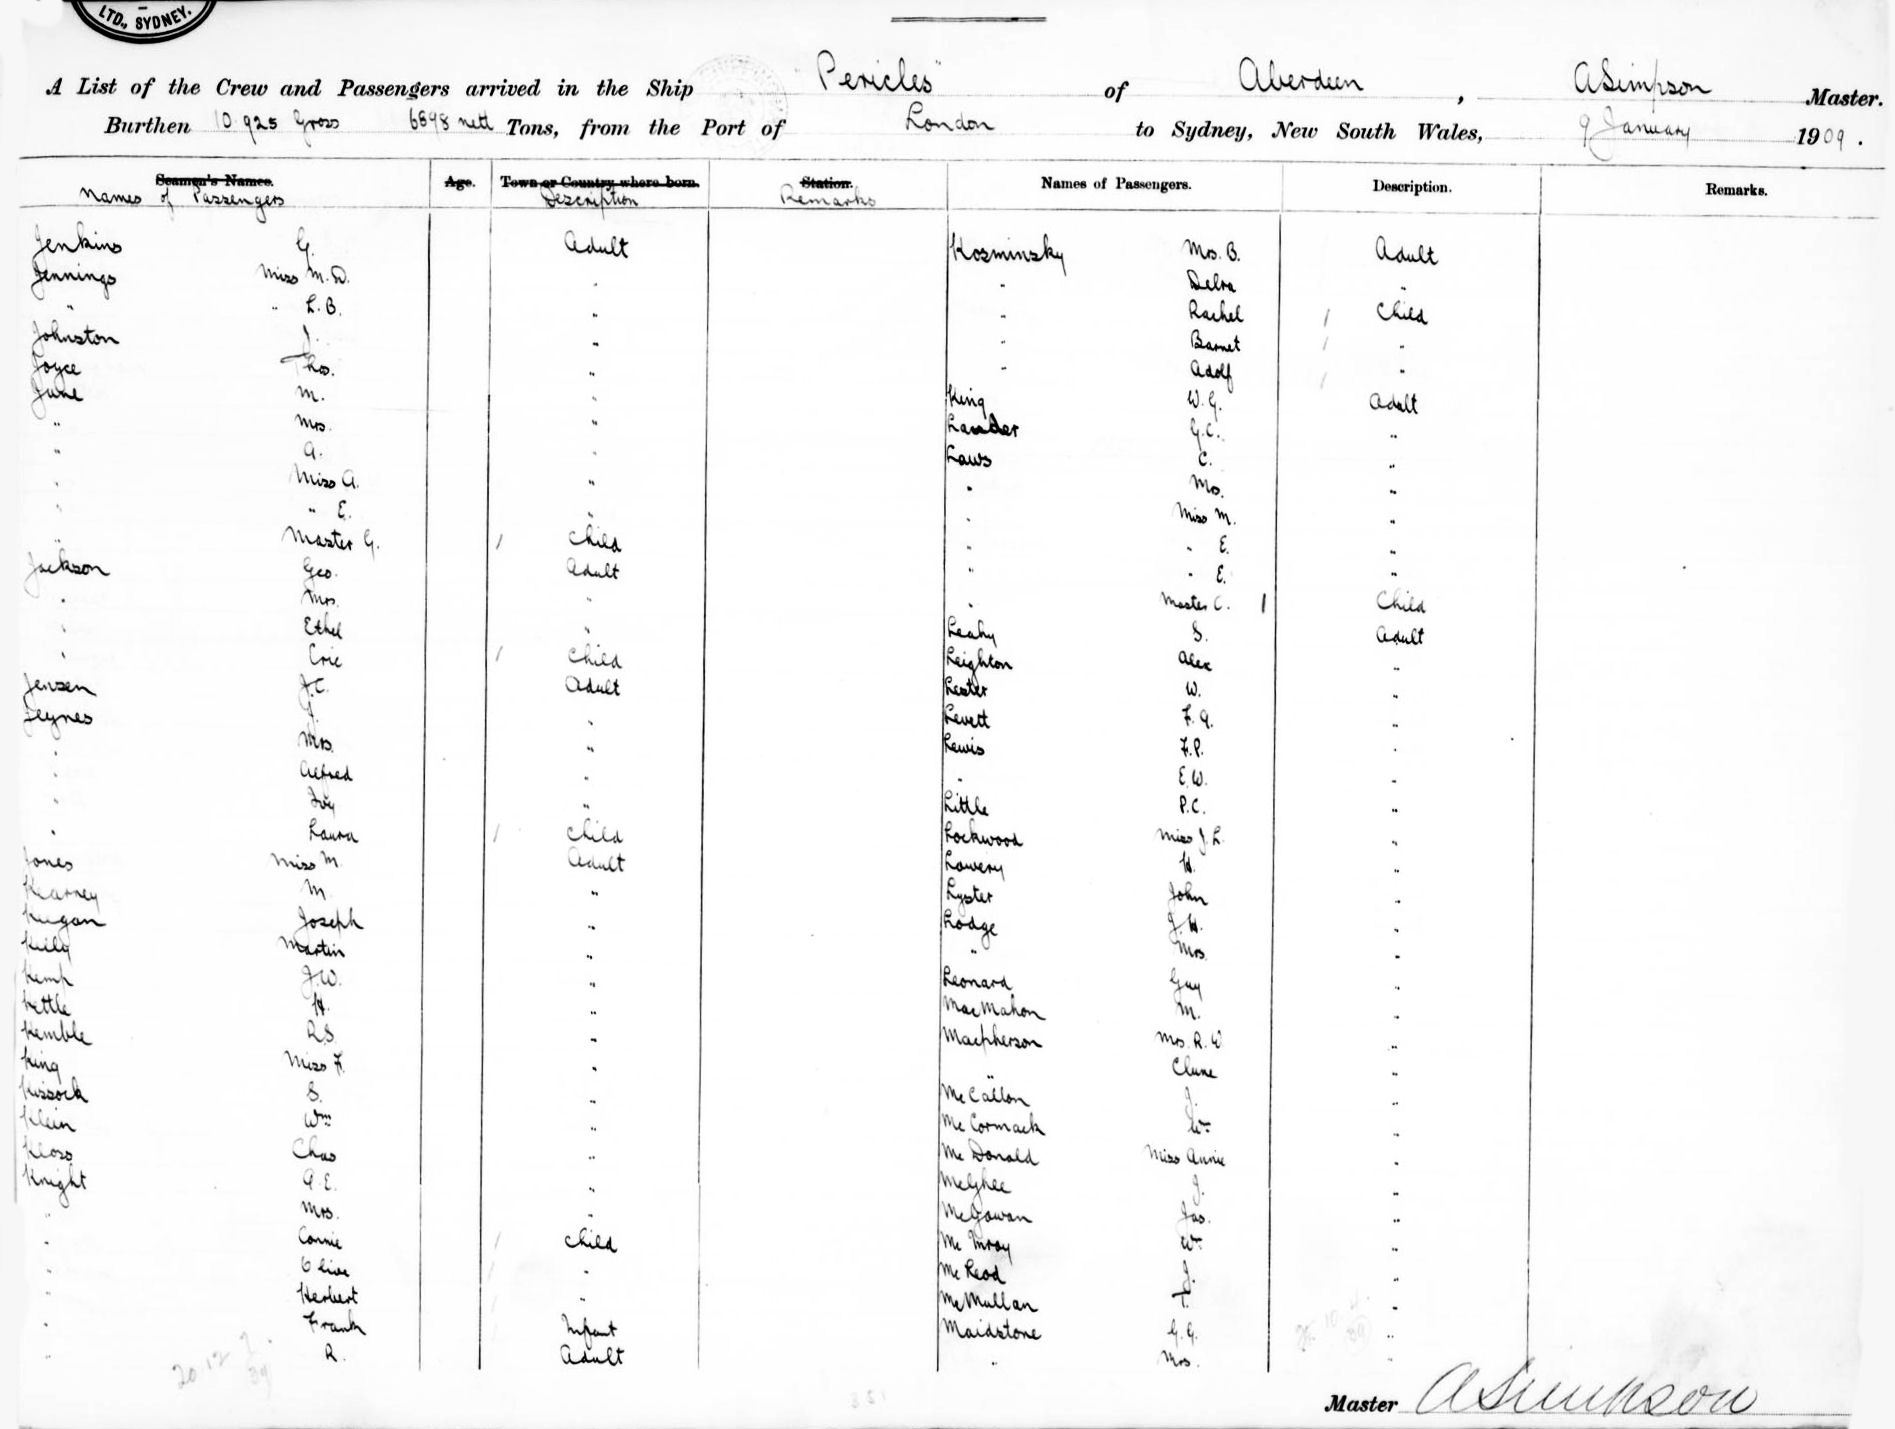 LTD., SYDNEY.
A List of the Crew and Passengers arrived in the Ship "Pericles" of Aberdeen, ASimpson Master.
Burthen 10 925 Gross 6898 nett Tons, from the Port of London to Sydney, New South Wales, 9 January 1909.
Seamen's Names. Age. Town or Country where born. Station. Names of Passengers. Description. Remarks.
Names of Passengers Description Remarks
Jenkins G. Adult
Jennings Miss M. D. "
" " L. B. "
Johnston J. "
Joyce Thos. "
June M. "
" Mrs. "
" A. "
" Miss A. "
" " E. "
" Master G. Child
Jackson Geo. Adult
" Mrs. "
" Ethel "
" Eric Child
Jensen J.C. Adult
Jeynes J. "
" Mrs. "
" Alfred "
" Ivy "
" Laura Child
Jones Miss M. Adult
Kearney M. "
Keegan Joseph "
Kielly Martin "
Kemp J.W. "
Kettle H. "
Kemble R.S. "
King Miss F. "
Kissock S. "
Klein Wm "
Kloss Chas "
Knight A.E. "
" Mrs. "
" Connie Child
" Olive "
" Herbert "
" Frank Infant
" R. Adult
20 12 2/39
Kosminsky Mrs. B. Adult
" Debra "
" Rachel Child
" Barnet "
" Adolf "
King W. G. Adult
Lander G.C. "
Laws C. "
" Mrs. "
" Miss M. "
" " E. "
" " E. "
" Master C. Child
Leahy S. Adult
Leighton Alex "
Lester W. "
Levett F. A. "
Lewis F.P. "
" E.W. "
Little P.C. "
Lockwood Miss J. L. "
Lowery H. "
Lyster John "
Lodge J.H. "
" Mrs "
Leonard Guy "
MacMahon M. "
Macpherson Mrs. R. W "
" Clune "
McCallon J. "
McCormack Wm "
McDonald Miss Annie "
McGhee J. "
McGowan Jas. "
McInroy Wm "
McLeod J. "
McMullan T. "
Maidstone G. G. "
" Mrs. "
351
Master ASimpson